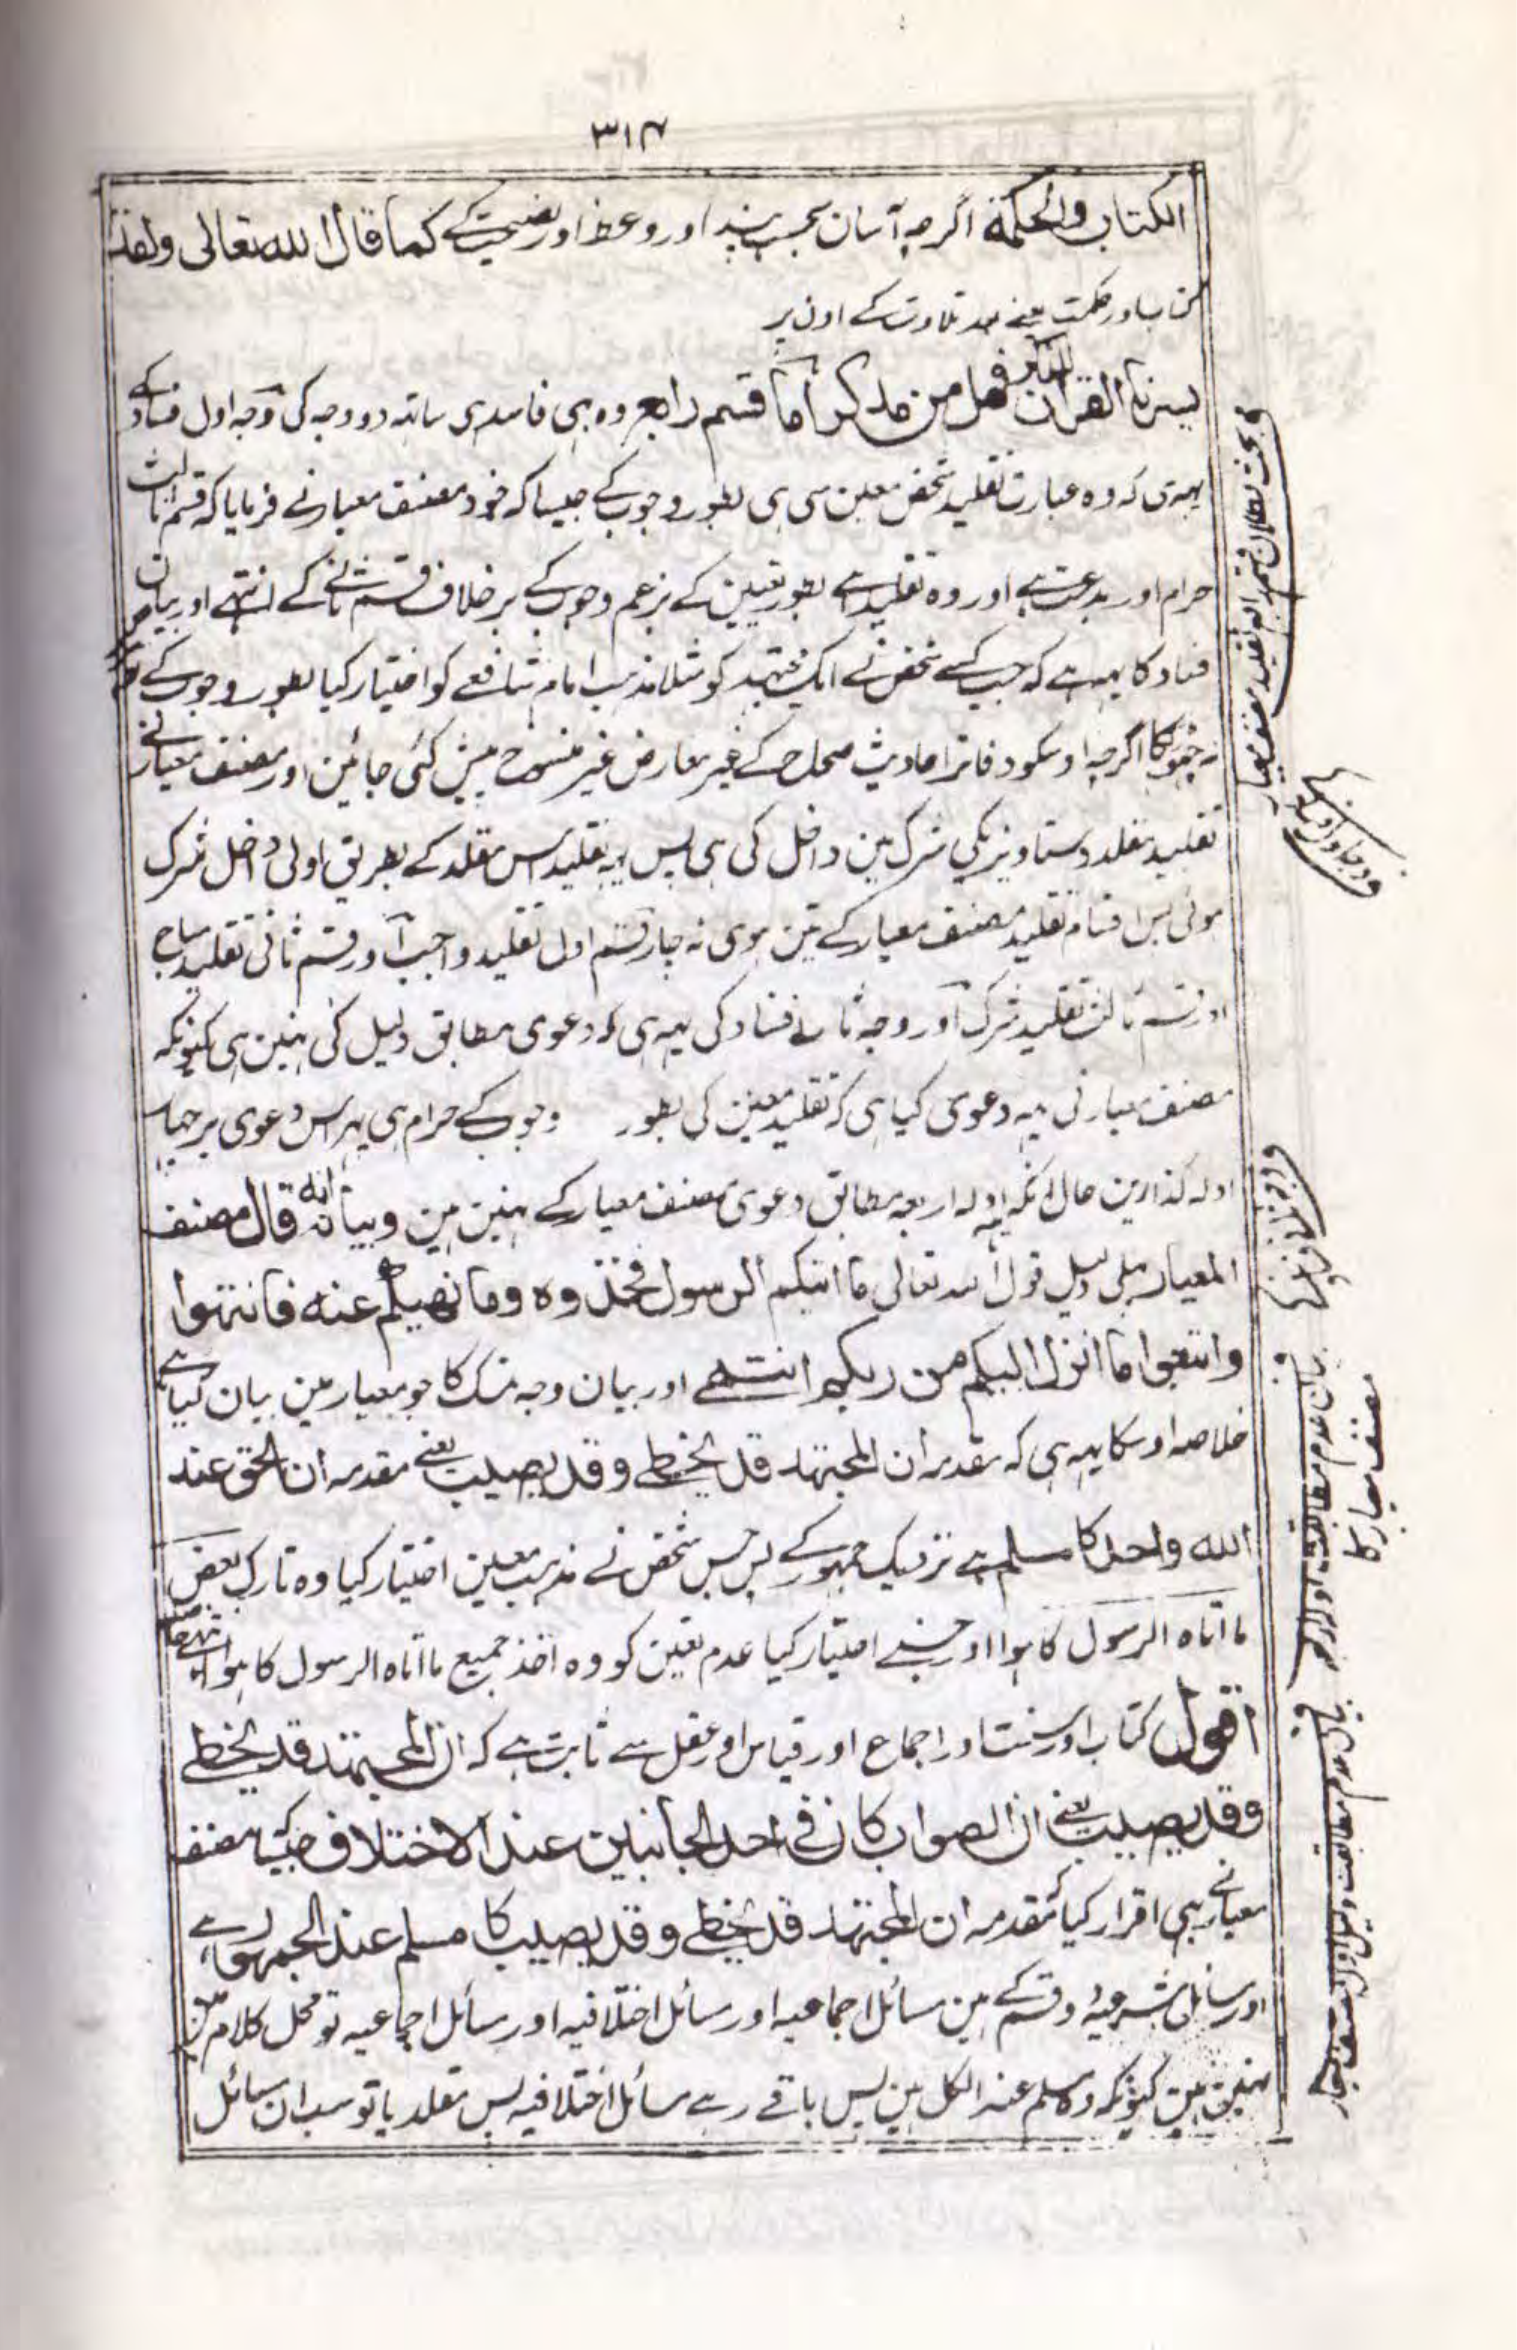 ۳۱۴
الکتاب والحکمة اگرچہ آسان بحسب پند اور وعظ اور نصیحت کے کما قال الله تعالی ولقد
کتاب اور حکمت یعنے بعد تلاوت کے اون پر
یسرنا القرآن للذکر فهل من مدکر اما قسم رابع وہ بہی فاسد ہی ساتہ دو وجہ کی وجہ اول فساد کے
یہہ ہی کہ وہ عبارت تقلید شخص معین سی ہی بطور وجوب کے جیسا کہ خود مصنف معیار نے فرمایا کہ قسم ثالث
حرام اور بدعت ہے اور وہ تقلید ہے بطور تعیین کے بزعم وجوب کے برخلاف قسم ثانے کے انتہے اور بیان
فساد کا یہہ ہے کہ جب کسے شخص نے ایک مجتہد کو مثلا مذہب امام شافعے کو اختیار کیا بطور وجوب کے
نہ چہوڑیگا اگرچہ اوسکو دفاتر احادیث صحاح کے غیر معارض غیر منسوخ پیش کئی جائین اور مصنف معیار نے
تقلید مقلد دستاویز یکی شرک مین داخل کی ہی پس یہہ تقلید اس مقلد کے بطریق اولی داخل شرک
ہوئی پس اقسام تقلید مصنف معیار کے تین ہوی نہ چار قسم اول تقلید واجب اور قسم ثانی تقلید مباح
اور قسم ثالث تقلید شرک اور وجہ ثانے فساد کی یہہ ہی کہ دعوی مطابق دلیل کی نہین ہی کیونکہ
مصنف معیار نی یہہ دعوی کیا ہی کہ تقلید معین کی بطور وجوب کے حرام ہی پہر اس دعوی پر چار
ادلہ گذارین حال انکہ یہہ ادلہ اربعہ مطابق دعوی مصنف معیار کے نہین ہین وبیانه انه قال مصنف
المعیار پہلی دلیل قول الله تعالی ما اتیکم الرسول فخذوه وما نهیکم عنه فانتهوا
واتبعوا ما انزل الیکم من ربکم انتہے اور بیان وجہ تمسک کا جو معیار مین بیان کیا ہے
خلاصہ اوسکا یہہ ہی کہ مقدمہ ان المجتهد قد یخطی وقد یصیب یعنے مقدمہ ان الحق عند
الله واحد کا مسلم ہے نزدیک جمہور کے پس جس شخص نے مذہب معین اختیار کیا وہ تارک بعض
ما اتاه الرسول کا ہوا اور جسنے اختیار کیا عدم تعیین کو وہ اخذ جمیع ما اتاه الرسول کا ہوا انتہے
اقول کتاب اور سنت اور اجماع اور قیاس اور عقل سے ثابت ہے کہ ان المجتهد قد یخطی
وقد یصیب یعنے ان الصواب کان فی احد الجانبین عند الاختلاف جیسا مصنف
معیار نے بہی اقرار کیا کہ مقدمہ ان المجتهد قد یخطی وقد یصیب کا مسلم عند الجمهور ہے
اور مسائل شرعیہ دو قسم کے ہین مسائل اجماعیہ اور مسائل اختلافیہ اور مسائل اجماعیہ تو محل کلام مین
نہین ہین کیونکہ وہ مسلم عند الکل ہین پس باقے رہے مسائل اختلافیہ پس مقلد یا تو سب ان مسائل
مصنف معیار کا